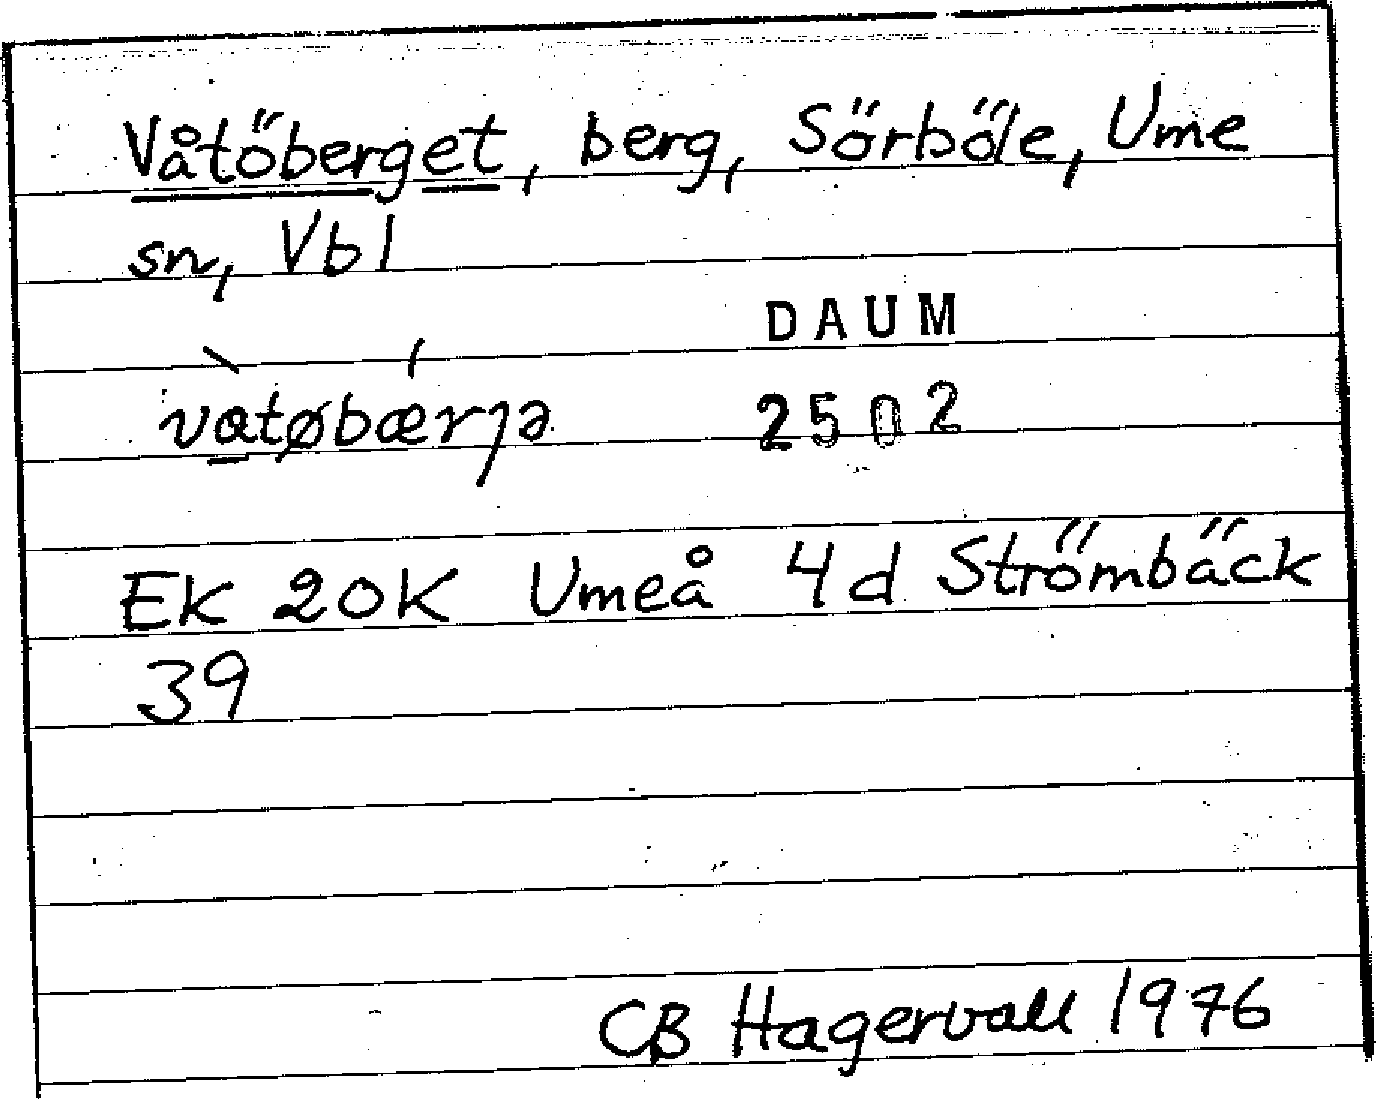 Våtöberget, berg, Sörböle, Ume
sn, Vbl
DAUM
vàtøbǽrȷə 2502
EK 20K Umeå 4d Strömbäck
39
CB Hagervall 1976